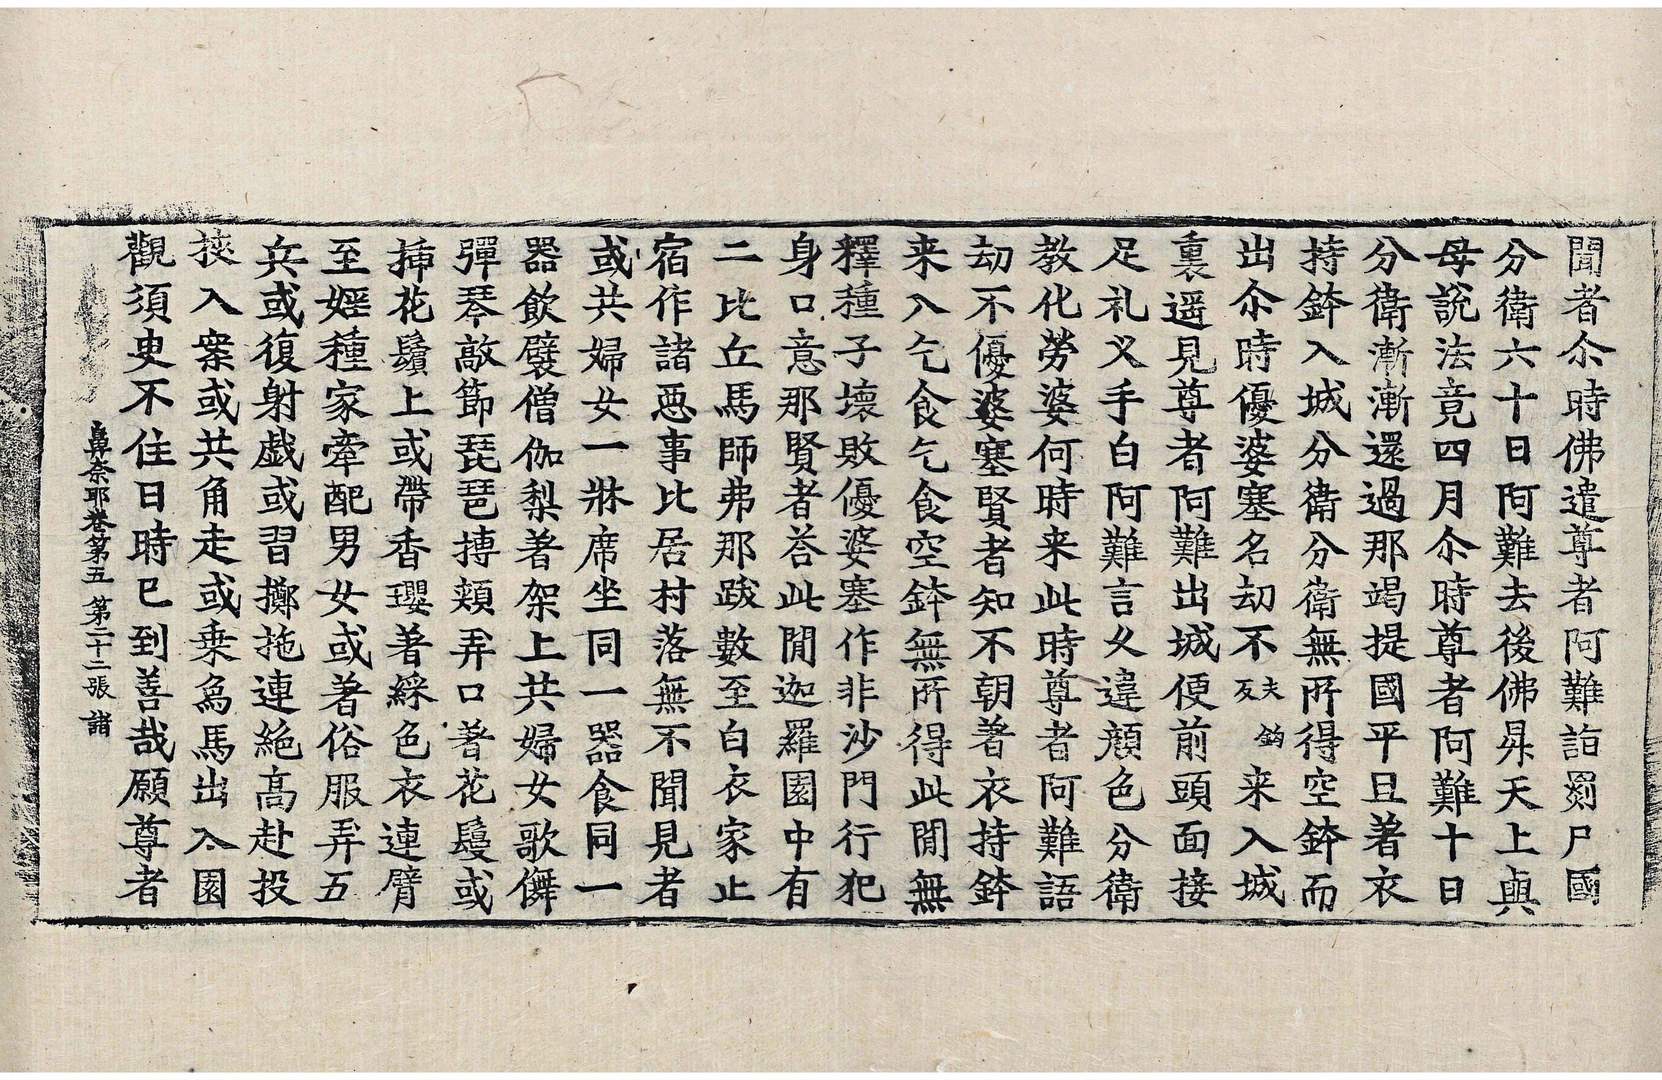 聞者尒時佛遣尊者阿難詣𦋺尸國
分衛六十日阿難去後佛昇天上與
母說法竟四月尒時尊者阿難十日
分衛漸漸還過那竭提國平旦著衣
持鉢入城分衛分衛無所得空鉢而
出尒時優婆塞名刧不夫鉤反来入城
裏遥見尊者阿難出城便前頭面接
足礼叉手白阿難言乆違顔色分衛
教化勞婆何時来此時尊者阿難語
刧不優婆塞賢者知不朝著衣持鉢
来入乞食乞食空鉢無所得此閒無
釋種子壞敗優婆塞作非沙門行犯
身口意那賢者荅此閒迦羅園中有
二比丘馬師弗那跋數至白衣家止
宿作諸惡事比居村落無不聞見者
或共婦女一牀席坐同一器食同一
器飲襞僧伽梨著架上共婦女歌儛
彈琴敲節琵琶搏頰弄口著花鬘或
揷花鬚上或帶香瓔著綵色衣連臂
至婬種家牽配男女或著俗服弄五
兵或復射戱或習擲拖連絶高赴投
挾入案或共角走或乗烏馬出入園
觀須史不住日時已到善哉願尊者
鼻奈耶卷第五 第二十二張 諸